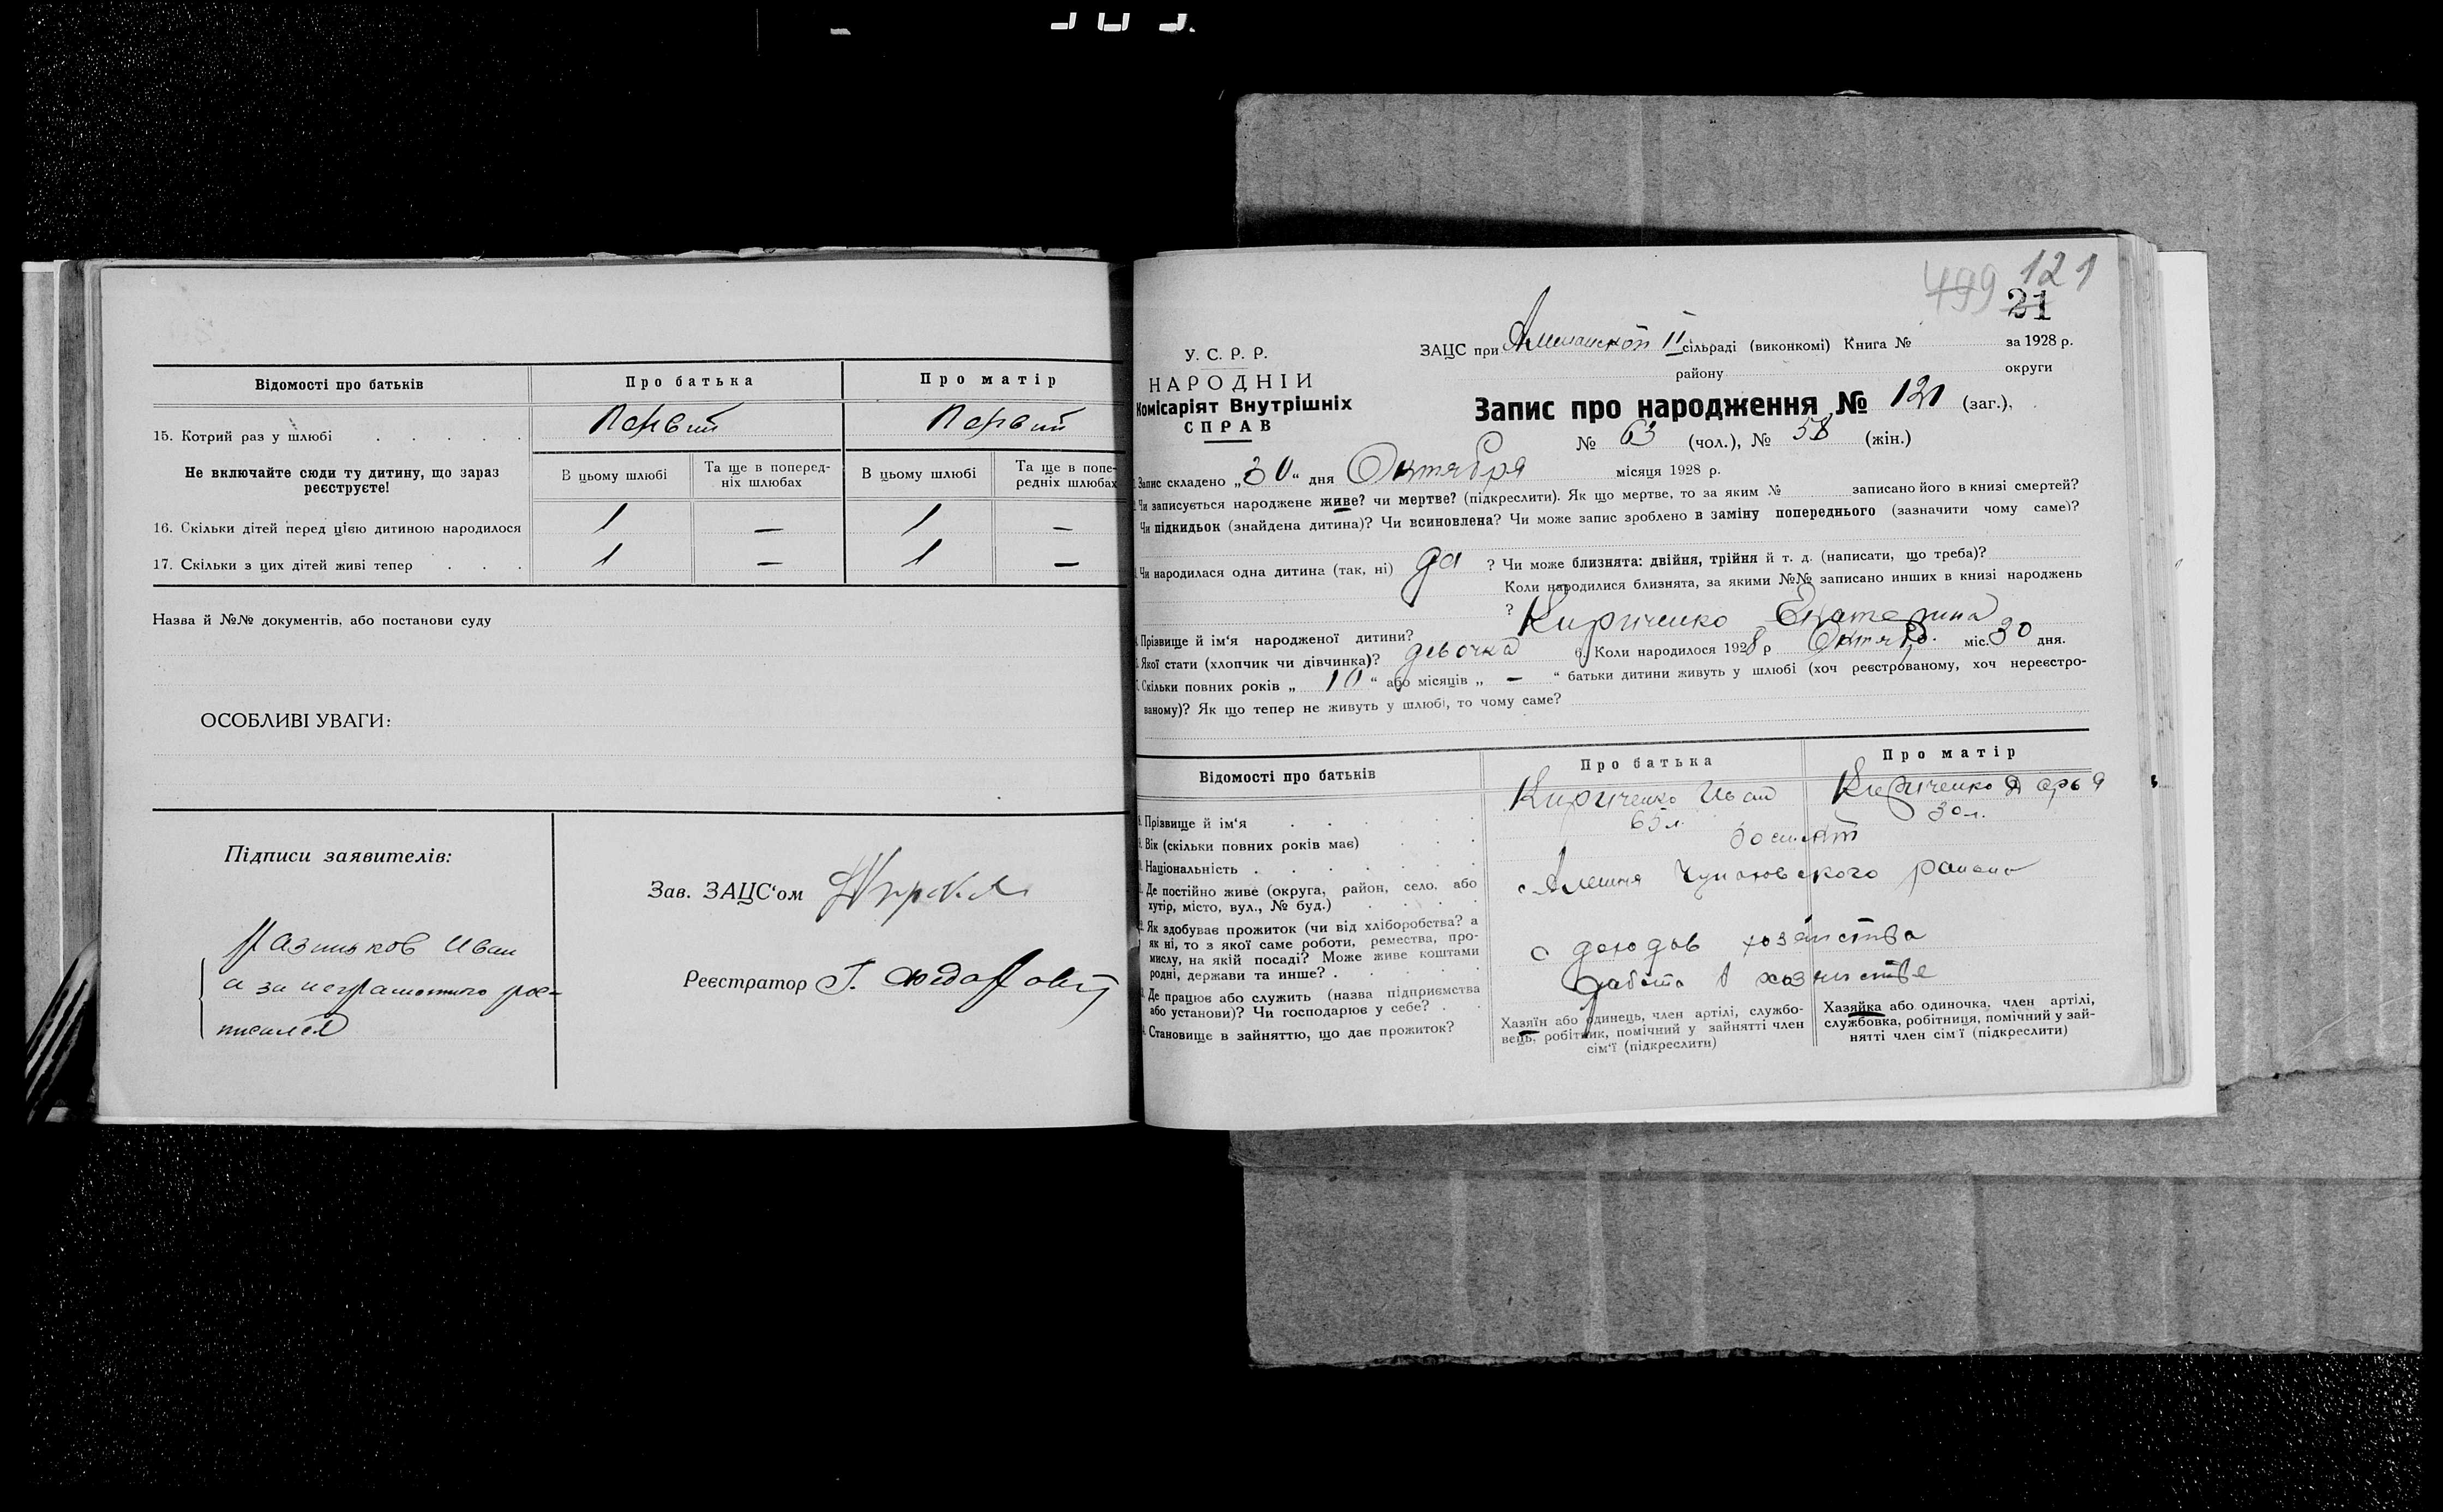 Відомості про батьків
Про батька
Про матір
15. Котрий раз у шлюбі . . . . .
Первий
Первий
Не включайте сюди ту дитину, що зараз
реєструєте!
В цьому шлюбі
Та ще в поперед-
ніх шлюбах
В цьому шлюбі
Та ще в попе-
редніх шлюбах
16. Скільки дітей перед цією дитиною народилося
1 — 1 —
17. Скільки з цих дітей живі тепер . . .
1 — 1 —
Назва й №№ документів, або постанови суду
ОСОБЛИВІ УВАГИ:
Підписи заявителів:
Иван
а за неграмотного рос-
писался
Зав. ЗАЦС‘ом
Реєстратор
499 121
21
У. С. Р. Р.
НАРОДНІЙ
Комісаріят Внутрішніх
СПРАВ
ЗАЦС при Алешанской II сільраді (виконкомі) Книга № за 1928 р.
району округи
Запис про народження № 121 (заг.),
№ 63 (чол.), № 58 (жін.)
Запис складено „30“ дня Октября місяця 1928 р.
Чи записується народжене живе? чи мертве? (підкреслити). Як що мертве, то за яким № записано його в книзі смертей?
Чи підкидьок (знайдена дитина)? Чи всиновлена? Чи може запис зроблено в заміну попереднього (зазначити чому саме)?
Чи народилася одна дитина (так, ні) да ? Чи може близнята: двійня, трійня й т. д. (написати, що треба)?
Коли народилися близнята, за якими №№ записано инших в книзі народжень
?
Прізвище й ім‘я народженої дитини? Кириченко Екатерина
Якої стати (хлопчик чи дівчинка)? девочка 6. Коли народилося 1928 р Октяб. міс. 30 дня.
Скільки повних років „ 10 “ або місяців „ — “ батьки дитини живуть у шлюбі (хоч реєстрованому, хоч нереєстро-
ваному)? Як що тепер не живуть у шлюбі, то чому саме?
Відомості про батьків
Про батька
Про матір
Прізвище й ім‘я . . . . .
Кириченко Иван
Кириченко Дарья
Вік (скільки повних років має) . . .
65 л.
30 л.
Національність . . . . . .
Де постійно живе (округа, район, село, або
хутір, місто, вул., № буд.) . . . .
с Алешня Чупаховского района
Як здобуває прожиток (чи від хліборобства? а
як ні, то з якої саме роботи, ремества, про-
мислу, на якій посаді? Може живе коштами
родні, держави та инше? . . . . .
с доходов хозяйства
Де працює або служить (назва підприємства
або установи)? Чи господарює у себе? . .
работа в хозяйстве
Становище в зайняттю, що дає прожиток?
Хазяїн або одинець, член артілі, службо-
вець, робітник, помічний у зайнятті член
сім‘ї (підкреслити)
Хазяйка або одиночка, член артілі,
службовка, робітниця, помічний у зай-
нятті член сім‘ї (підкреслити)